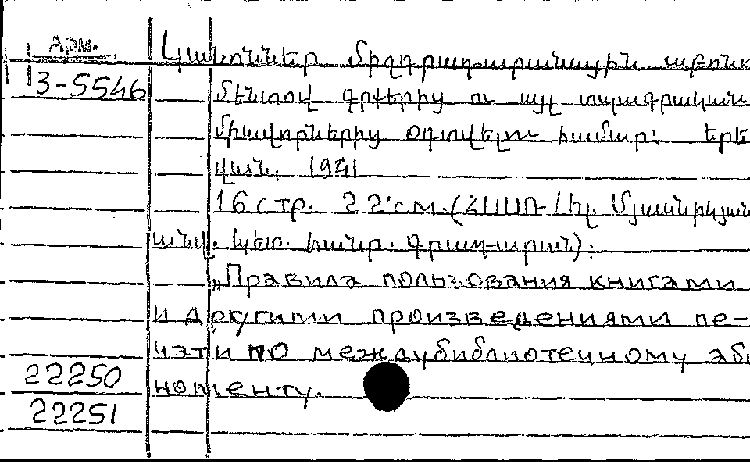 Арм.
3-5546
Կանոններ միջգրադարանային աբոնե
մենտով գրքերից ու այլ տպագրական
միավորներից օգտվելու համար: Երե
վան, 1941
16 стр. 22 см. (ՀՍՍՌ Ալ. Մյասնիկյան
անվ. պետ. հանր. գրադարան):
„Правила пользования книгами
и другими произведениями пе-
чати по междубиблиотечному або
нементу.
22250
22251